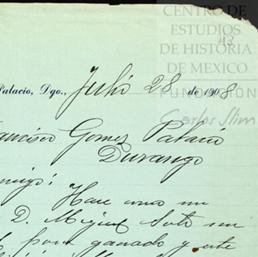 CENTRO DE
ESTUDIOS
DE HISTORIA
DE MEXICO
FUNDACIÓN
Carlos Slim
Palacio, Dgo., Juli 28 de 1908
ancisco Gomez Palacio
Durango
migo:
Hace una
D. Miguel Soto
para ganado y este